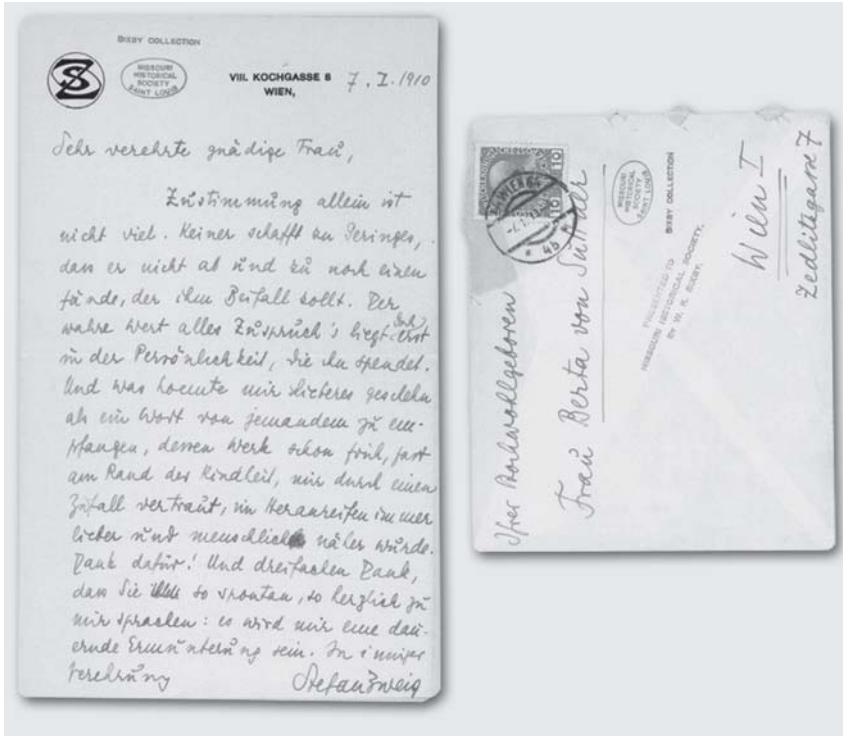 BIXBY COLLECTION
SZ
MISSOURI
HISTORICAL
SOCIETY
SAINT LOUIS
VIII. KOCHGASSE 8
WIEN,
7. I. 1910
Sehr verehrte gnädige Frau,
Zustimmung allein ist
nicht viel. Keiner schafft so Geringes,
dass er nicht ab und zu noch einen
fände, der ihm Beifall zollt. Der
wahre Wert alles Zuspruch's liegt doch erst
in der Persönlichkeit, die ihn spendet.
Und was koennte mir Lieberes geschehn
als ein Wort von jemandem zu em-
pfangen, dessen Werk schon früh, fast
am Rand der Kindheit, mir durch einen
Zufall vertraut, im Heranreifen immer
lieber und menschlich näher wurde.
Dank dafür! Und dreifachen Dank,
dass Sie so spontan, so herzlich zu
mir sprachen: es wird mir eine dau-
ernde Ermunterung sein. In inniger
Verehrung
Stefan Zweig
WIEN
10
10
4b
Ihrer Hochwohlgeboren
Frau Berta von Suttner
MISSOURI
HISTORICAL
SOCIETY
SAINT LOUIS
BIXBY COLLECTION
PRESENTED TO
MISSOURI HISTORICAL SOCIETY,
BY W. K. BIXBY.
Wien I
Zedlitzgasse 7